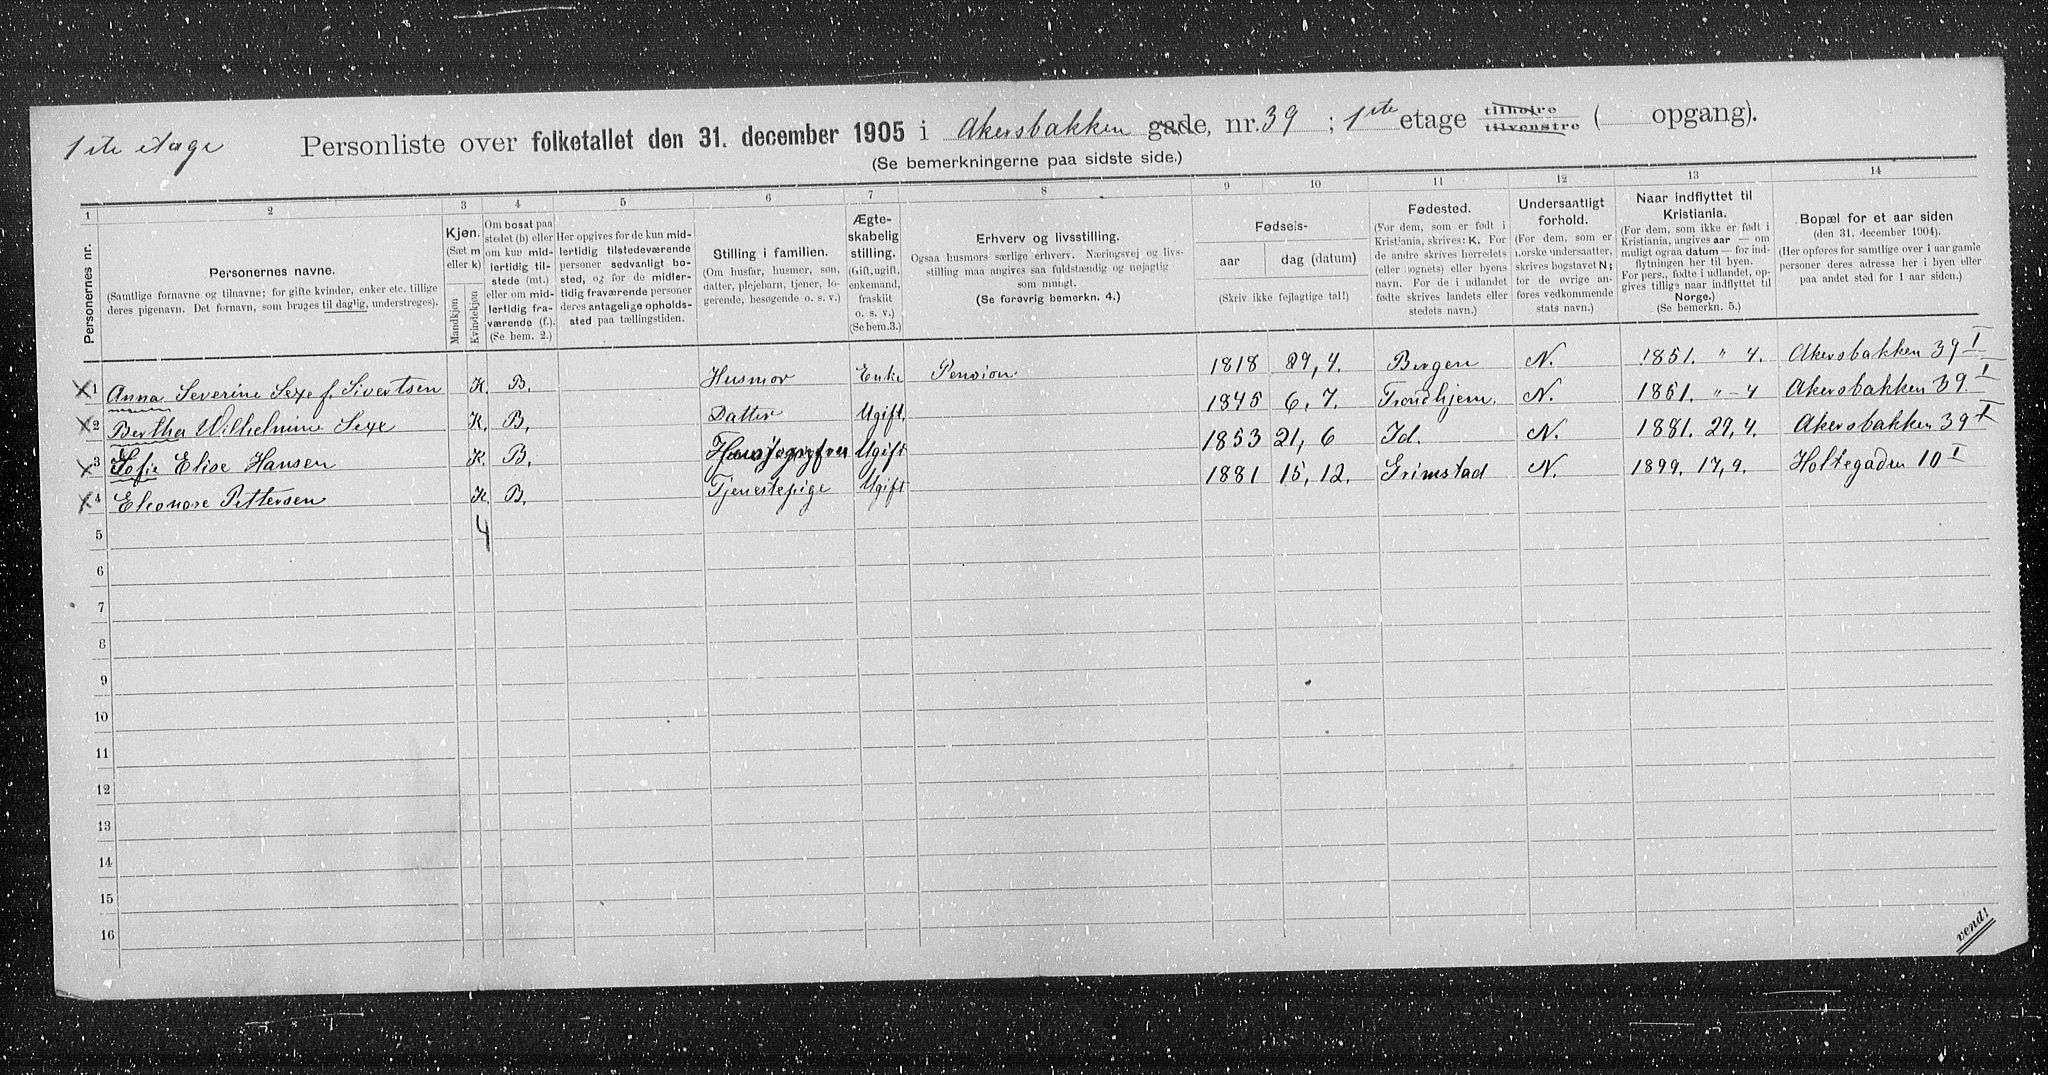 1ste etage
Personliste over folketallet den 31. december 1905 i Akersbakken gade, nr. 39 ; 1ste etage tilhøire tilvenstre ( opgang).
(Se bemerkningerne paa sidste side.)
1 2 3 4 5 6 7 8 9 10 11 12 13 14
Personernes nr.
Personernes navne.
(Samtlige fornavne og tilnavne; for gifte kvinder, enker etc. tillige
deres pigenavn. Det fornavn, som bruges til daglig, understreges).
Kjøn.
(Sæt m
eller k)
Mandkjøn
Kvindekjøn
Om bosat paa
stedet (b) eller
om kun mid-
lertidig til-
stede (mt.)
eller om mid-
lertidig fra-
værende (f.).
(Se bem. 2.)
Her opgives for de kun mid-
lertidig tilstedeværende
personer sedvanlig bo-
sted, og for de midler-
tidig fraværende personer
deres antagelige opholds-
sted paa tællingstiden.
Stilling i familien.
(Om husfar, husmor, søn,
datter, plejebarn, tjener, lo-
gerende, besøgende o. s. v.)
Ægte-
skabelig
stilling.
(Gift, ugift,
enkemand,
fraskilt
o. s. v.)
(Se bem. 3.)
Erhverv og livsstilling.
Ogsaa husmors særlige erhverv. Næringsvej og livs-
stilling maa angives saa fuldstændig og nøjagtig
som muligt.
(Se forøvrig bemerkn. 4.)
Fødsels-
aar dag (datum)
(Skriv ikke fejlagtige tal!)
Fødested.
(For dem, som er født i
Kristiania, skrives: K. For
de andre skrives herredets
(eller sognets) eller byens
navn. For de i udlandet
fødte skrives landets eller
stedets navn.)
Undersaatligt
forhold.
(For dem, som er
norske undersaatter,
skrives bogstavet N;
for de øvrige an-
føres vedkommende
stats navn.)
Naar indflyttet til
Kristiania.
(For dem, som ikke er født i
Kristiania, angives aar — om
muligt ogsaa datum — for ind-
flytningen her til byen.
For pers., fødte i udlandet, op-
gives tillige naar indflyttet til
Norge.)
(Se bemerkn. 5.)
Bopæl for et aar siden
(den 31. december 1904).
(Her opføres for samtlige over 1 aar gamle
personer deres adresse her i byen eller
paa andet sted for 1 aar siden.)
1 Anna Severine Sexe f. Sivertsen K. B. Husmor Enke Pension 1818 29, 4. Bergen N. 1851. " 4. Akersbakken 39 I
2 Bertha Wilhelmine Sexe K. B. Datter Ugift 1845 6, 7. Trondhjem N. 1851. " - 4 Akersbakken 39 I
3 Sofie Elise Hansen K. B. Ugift 1853 21, 6 Id. N. 1881. 29, 4. Akersbakken 39 I
4 Eleonore Pettersen K. B. Tjenestepige Ugift 1881 15, 12. Grimstad N. 1899. 17, 9. Holtegaden 10 I
5 4
6
7
8
9
10
11
12
13
14
15
16
vend!